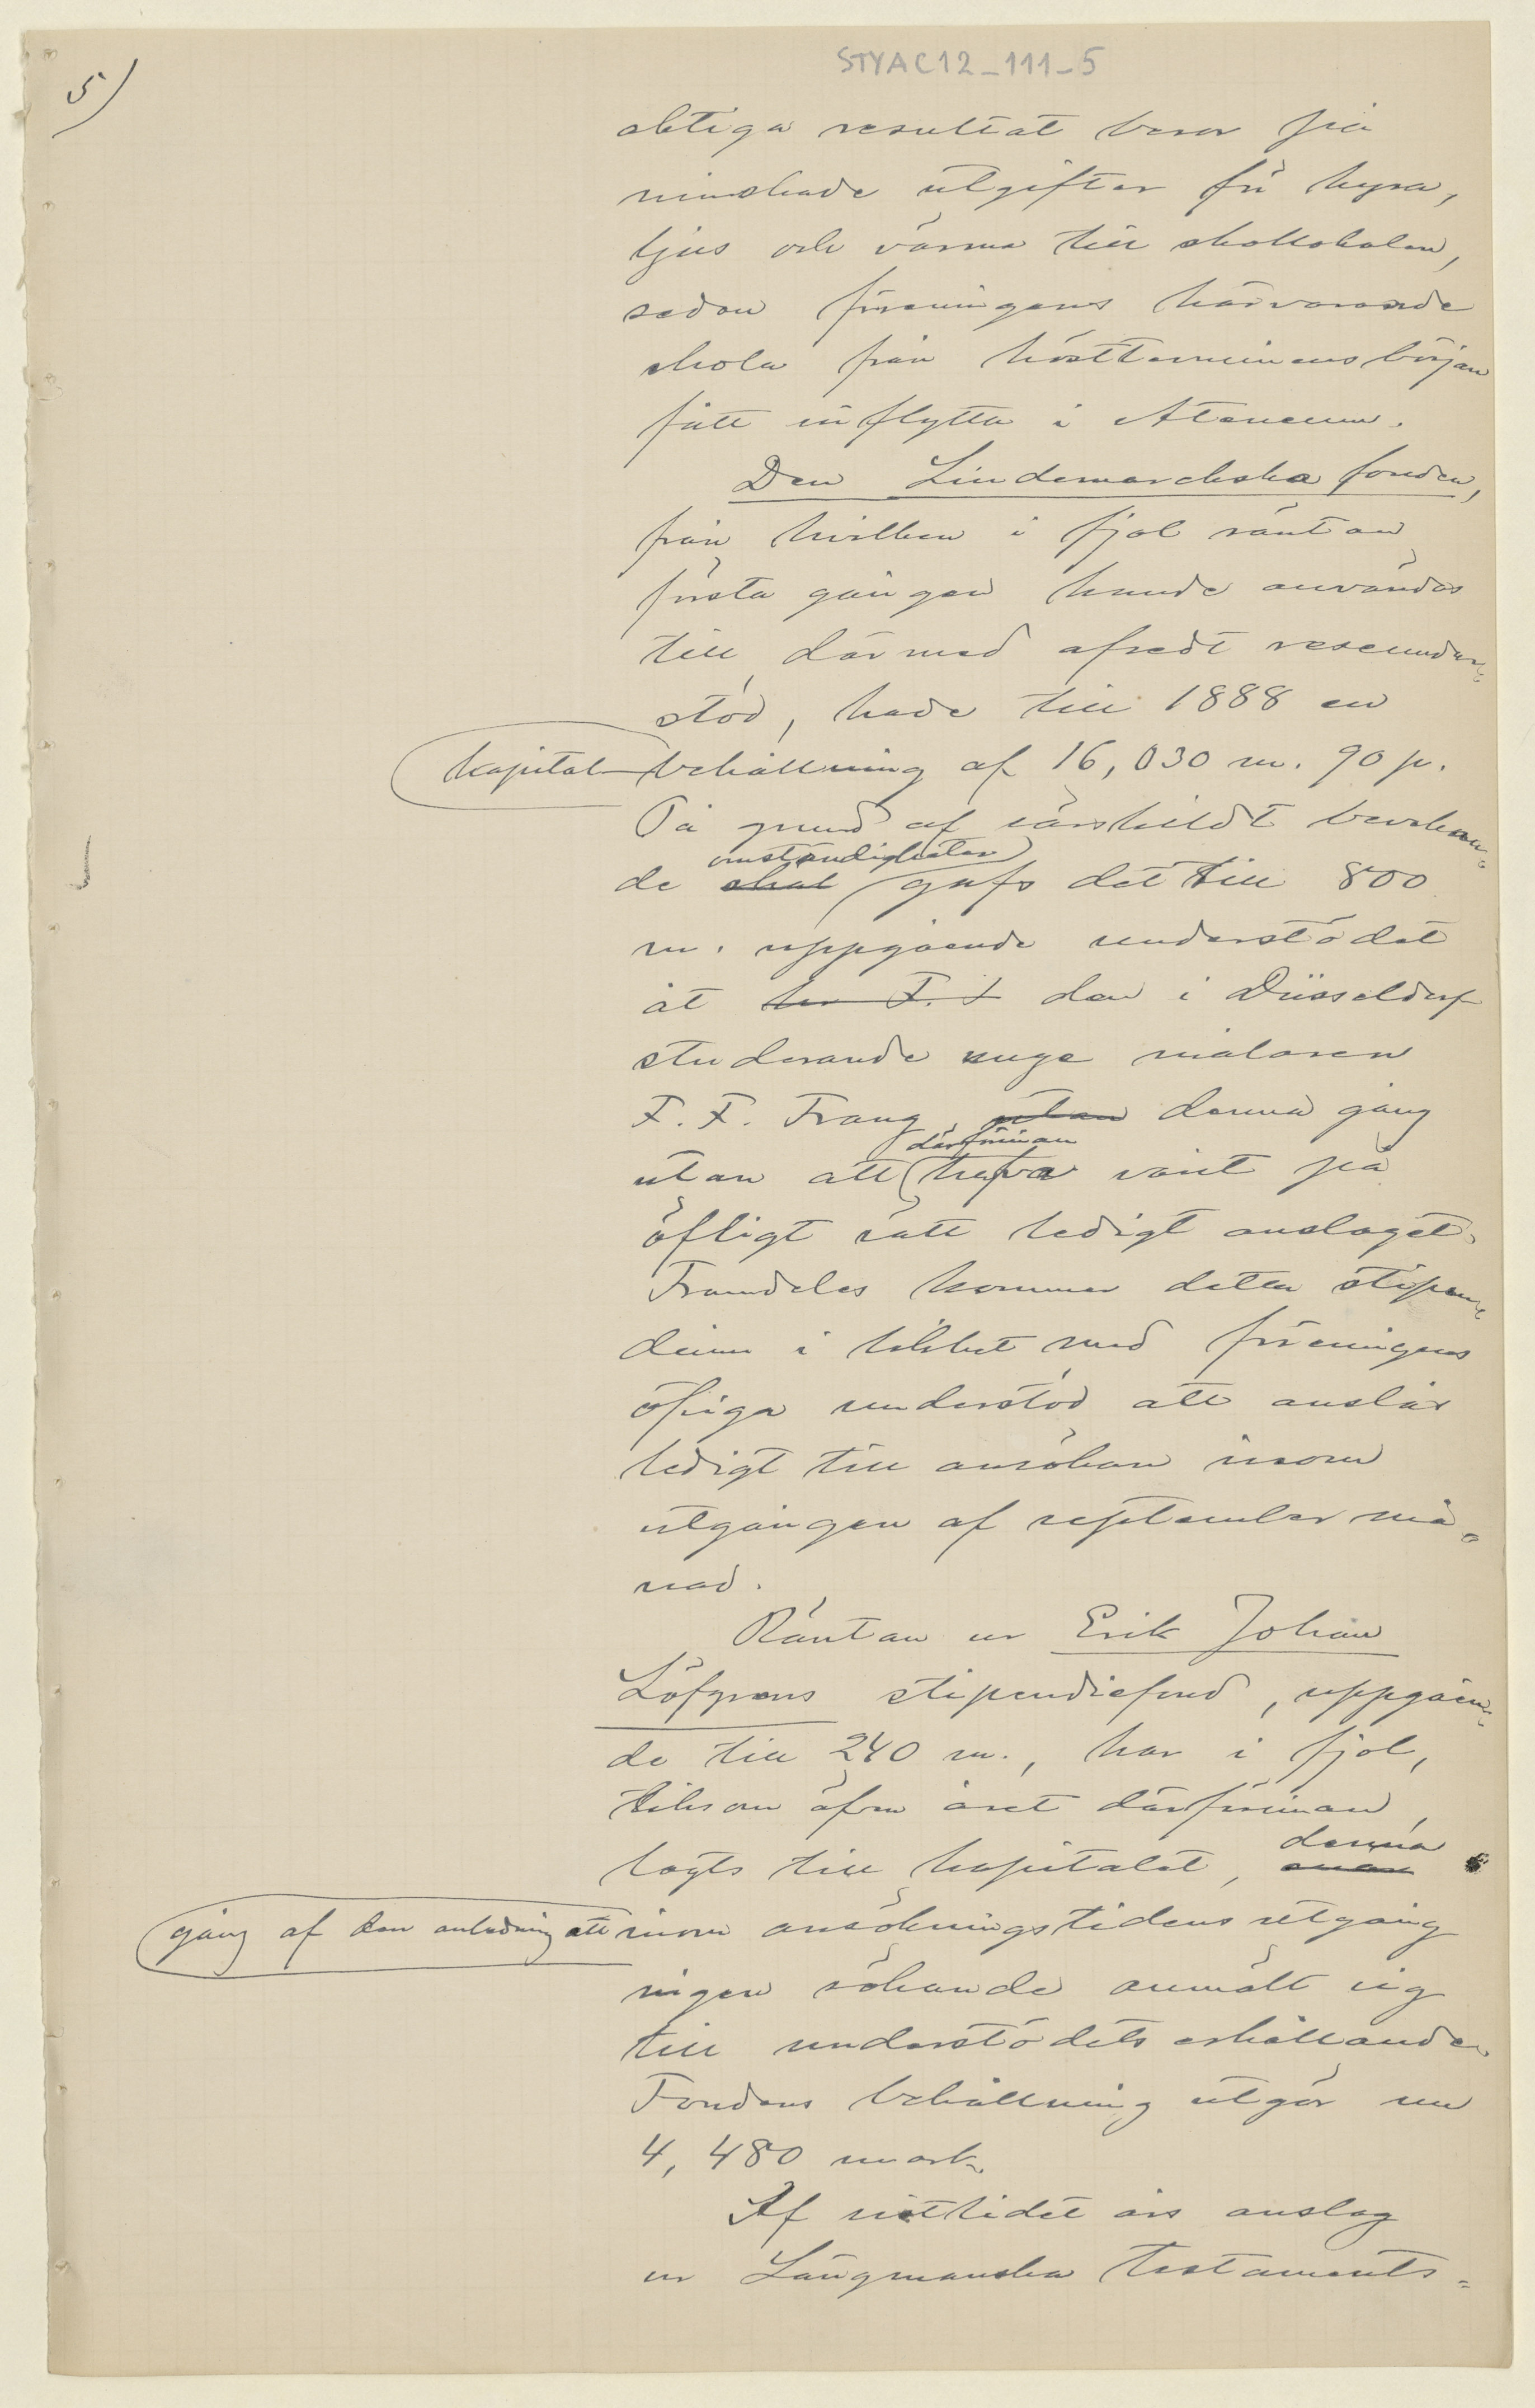 STYAC12_111_5
5)
aktiga resultat beror på
minskade utgifter för hyra,
ljus och värma till skollokalen,
sedan föreningens härvarande
skola från höstterminens början
fått inflytta i Ateneum.
Den Lindemarckska fonden,
från hvilken i fjol räntan
första gången kunde användas
till därmed afsedt reseunder-
stöd, hade till 1888 en
kapitalbehållning af 16,030 m. 90 p.
På grund af särskildt bevekan-
omständigheter
de skäl gafs det till 800
m. uppgående understödet
åt hr F. F den i Düsseldorf
studerande unge målaren
F. F. Frang, utan denna gång
därförinnan
utan att hafva varit på
öfligt sätt ledigt anslaget.
Framdeles kommer detta stipen-
dium i likhet med föreningens
öfriga understöd att anslås
ledigt till ansökan inom
utgången af september må-
nad.
Räntan ur Erik Johan
Löfgrens stipendiefond, uppgåen-
de till 240 m., har i fjol,
liksom äfven året därförinnan,
denna
lagts till kapitalet,
gång af den anledning att inom ansökningstidens utgång
ingen sökande anmält sig
till understödets erhållande.
Fondens behållning utgör nu
4,480 mark.
Af sistlidet års anslag
ur Längmanska testaments-